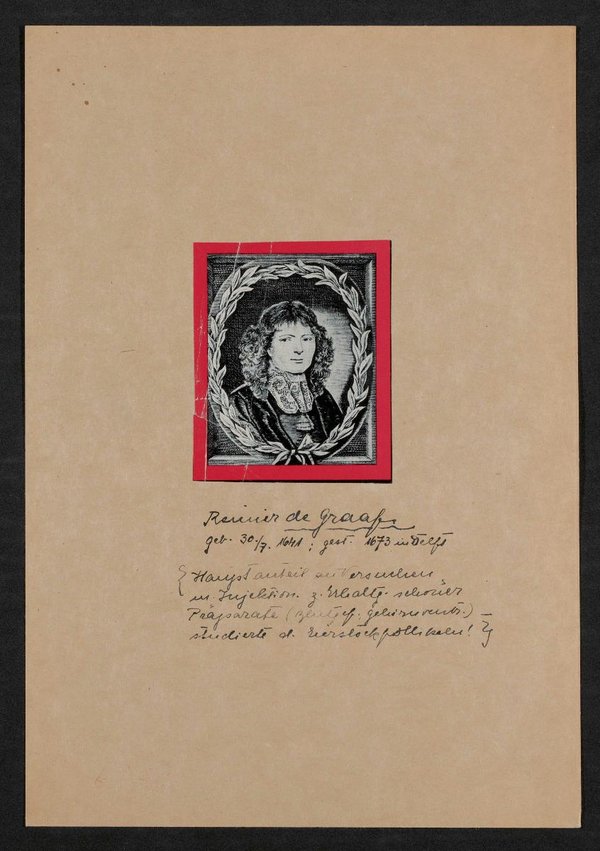 Reinier de Graaf
geb. 30./7. 1641 ; gest. 1673 in Delft
{ Hauptanteil an Versuchen
m. Injektion z. Erhaltg. schöner
Präparate (Blutgef. gehirnventr.)
studierte d. Eierstockfollikeln! }